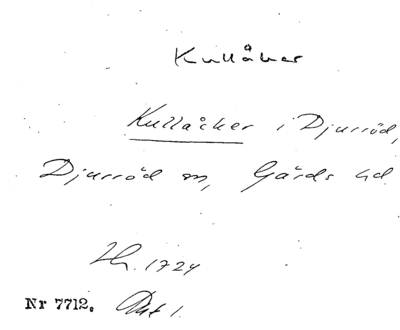 Kullåker
Kullaåker i Djurröd,
Djurröd sn, Gärds hd
1724
Nr 7712. Akt 1.